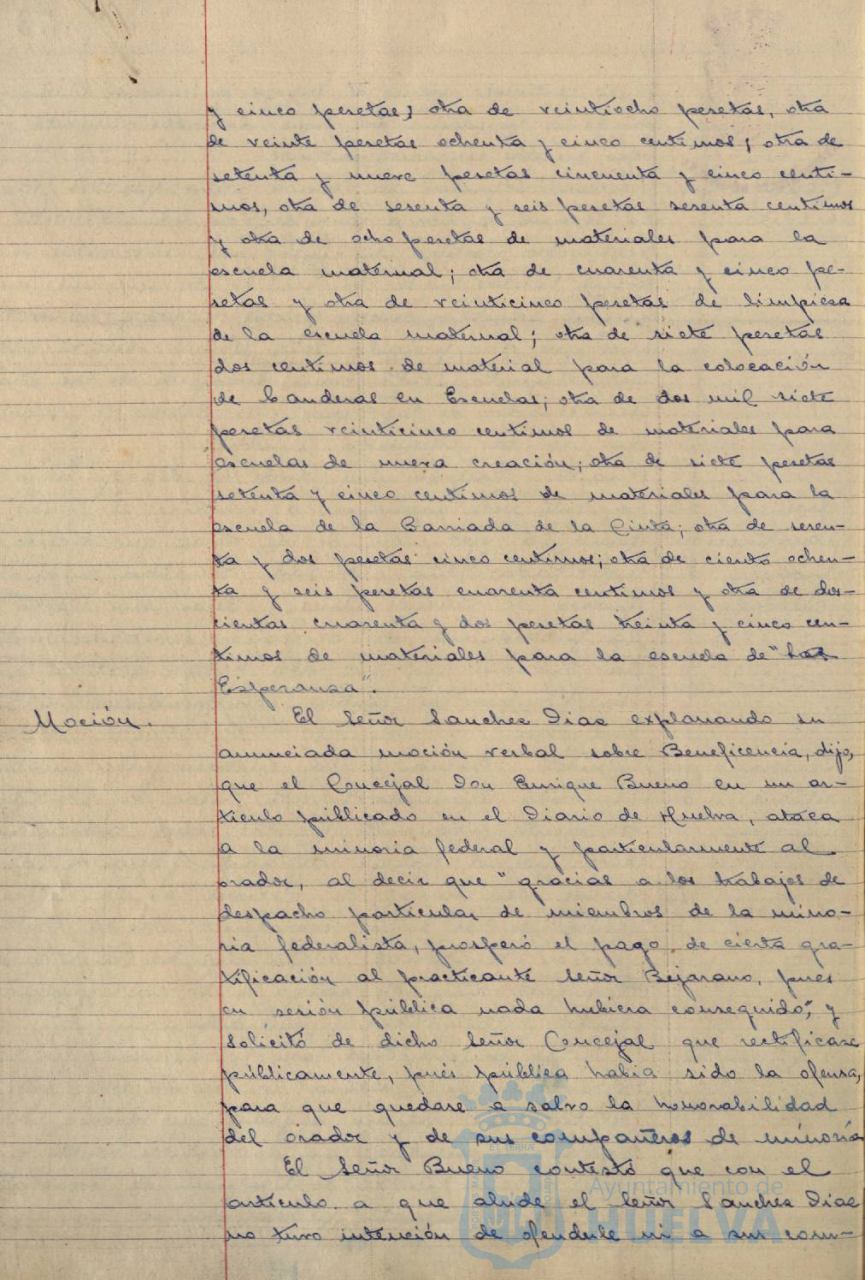 y cinco pesetas; otra de veintiocho pesetas, otra
de veinte pesetas ochenta y cinco centimos; otra de
setenta y nueve pesetas cincuenta y cinco centi-
mos, otra de sesenta y seis pesetas sesenta centimos
y otra de ocho pesetas de materiales para la
escuela maternal; otra de cuarenta y cinco pe-
setas y otra de veinticinco pesetas de limpiesa
de la escuela maternal; otra de siete pesetas
dos centimos de material para la colocación
de banderas en Escuelas; otra de dos mil siete
pesetas veinticinco centimos de materiales para
escuelas de nueva creación; otra de siete pesetas
setenta y cinco centimos de materiales para la
escuela de la Barriada de la Cinta; otra de seten-
ta y dos pesetas cinco centimos; otra de ciento ochen-
ta y seis pesetas cuarenta centimos y otra de dos-
cientas cuarenta y dos pesetas treinta y cinco cen-
timos de materiales para la escuela de "
Esperanza".
Moción.
El Señor Sanchez Diaz explanando su
anunciada moción verbal sobre Beneficencia, dijo,
que el Concejal Don Enrique Bueno en un ar-
tículo públicado en el Diario de Huelva, ataca
a la minoria federal y particularmente al
orador, al decir que "gracias a los trabajos de
despacho particular de miembros de la mino-
ria federalista, prosperó el pago de cierta gra-
tificación al practicante Señor Bejarano, pues
en sesión pública nada hubiera conseguido," y
solicitó de dicho Señor Concejal que rectificase
públicamente, pués pública habia sido la ofensa,
para que quedase a salvo la honorabilidad
del orador y de sus compañeros de minoria
El Señor Bueno contestó que con el
articulo a que alude el Señor Sanchez Diaz
no tuvo intención de ofenderle ni a sus com-
Ayuntamiento de
HUELVA